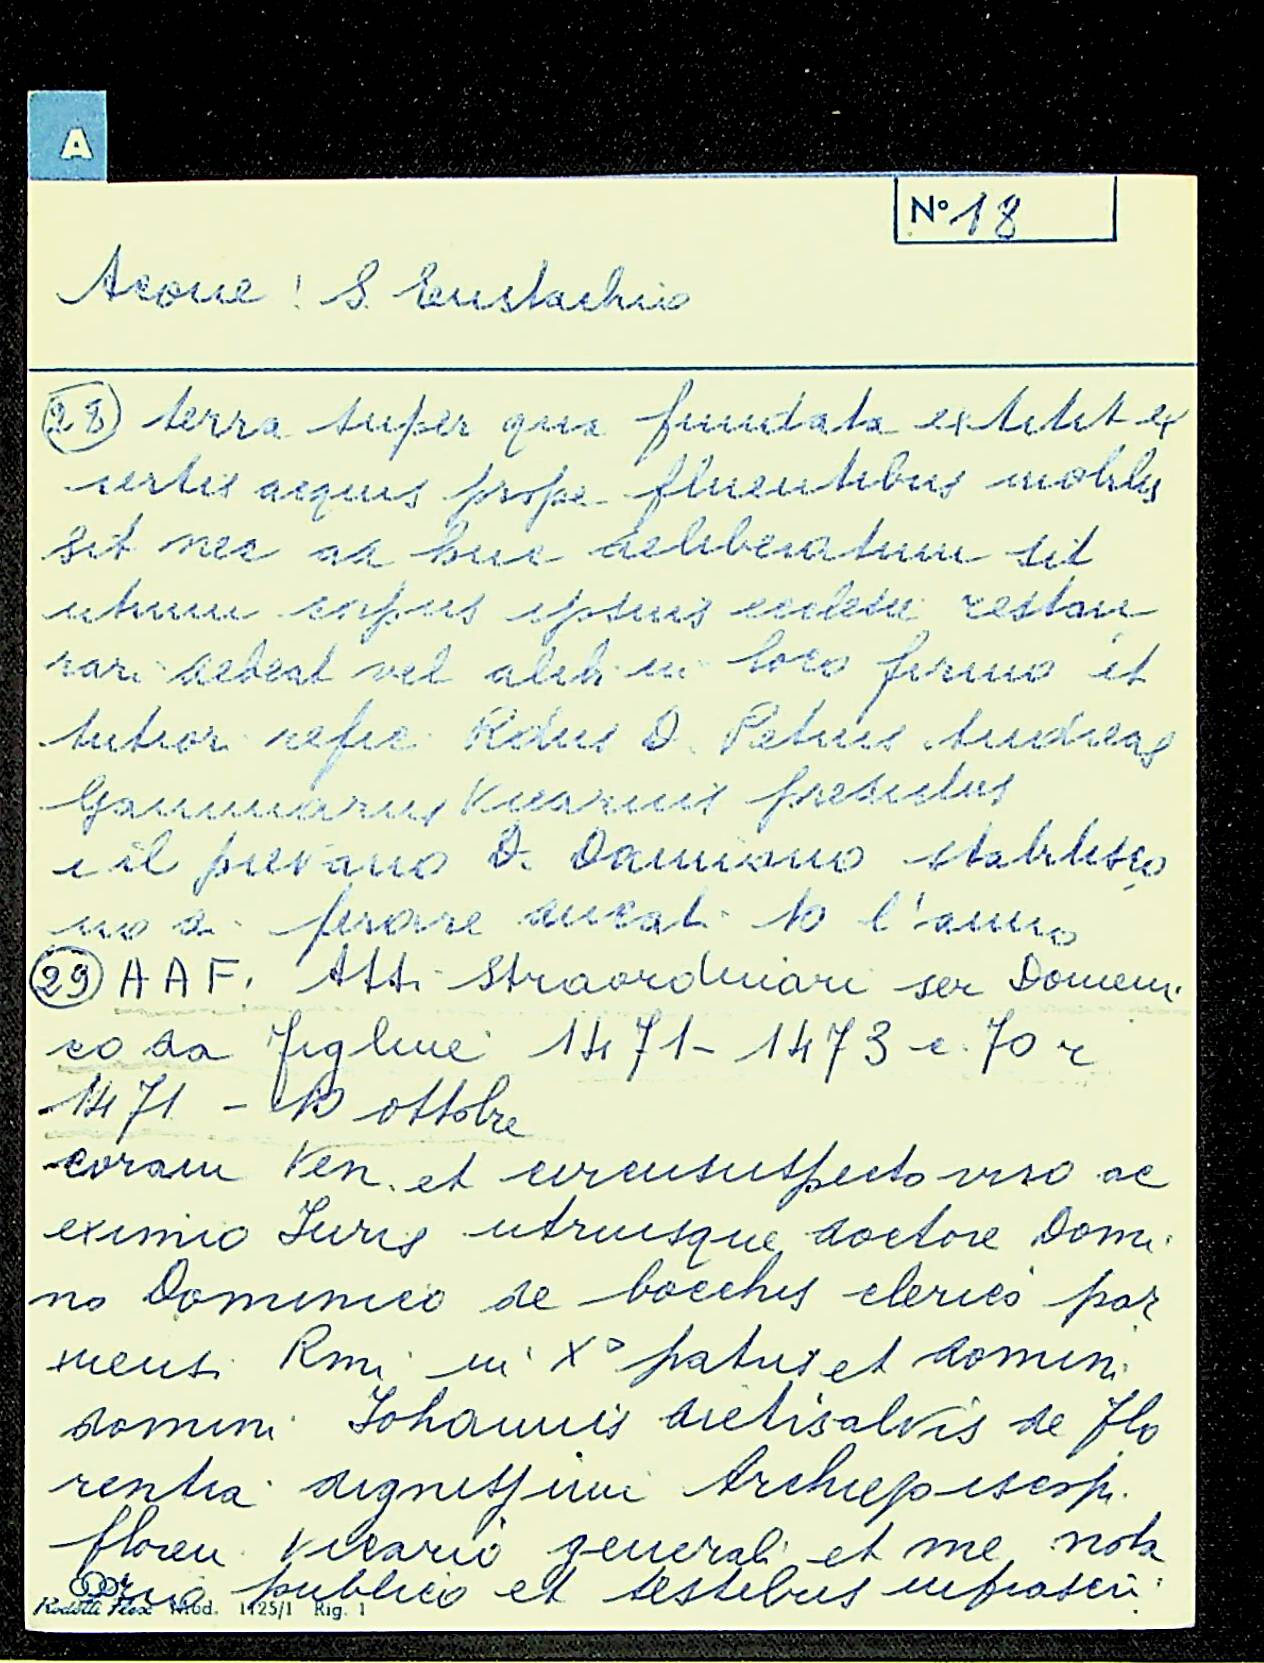 A
N° 18
Acone : S. Eustachio
(28) terra super qua fundata extitit ex
certis aquis prope fluentibus mobilis
sit nec ad huc deliberatum sit
utrum corpus ipsius ecclesie restau
rari debeat vel alibi in loco firmo et
tutiori refic. Rdus D. Petrus Andreas
Gammarus Vicarius
e il pievano D. Damiano stabilisco
no di ducati 10 l'anno
(29) AAF. Atti Straordinari ser Domeni
co da Figline 1471-1473 c. 70 r
1471 - 10 ottobre
coram Ven. et circunspecto viro ac
eximio Juris utriusque doctore Domi
no Dominico de bocchis clerico par
mensi Rmi in X° patris et domini
domini Johannis dietisalvis de Flo
rentia dignissimi Archiepiscopi
floren vicario generali et me nota
rio publico et testibus infrascri
Rodolli Flex Mod. 1125/1 Rig. 1